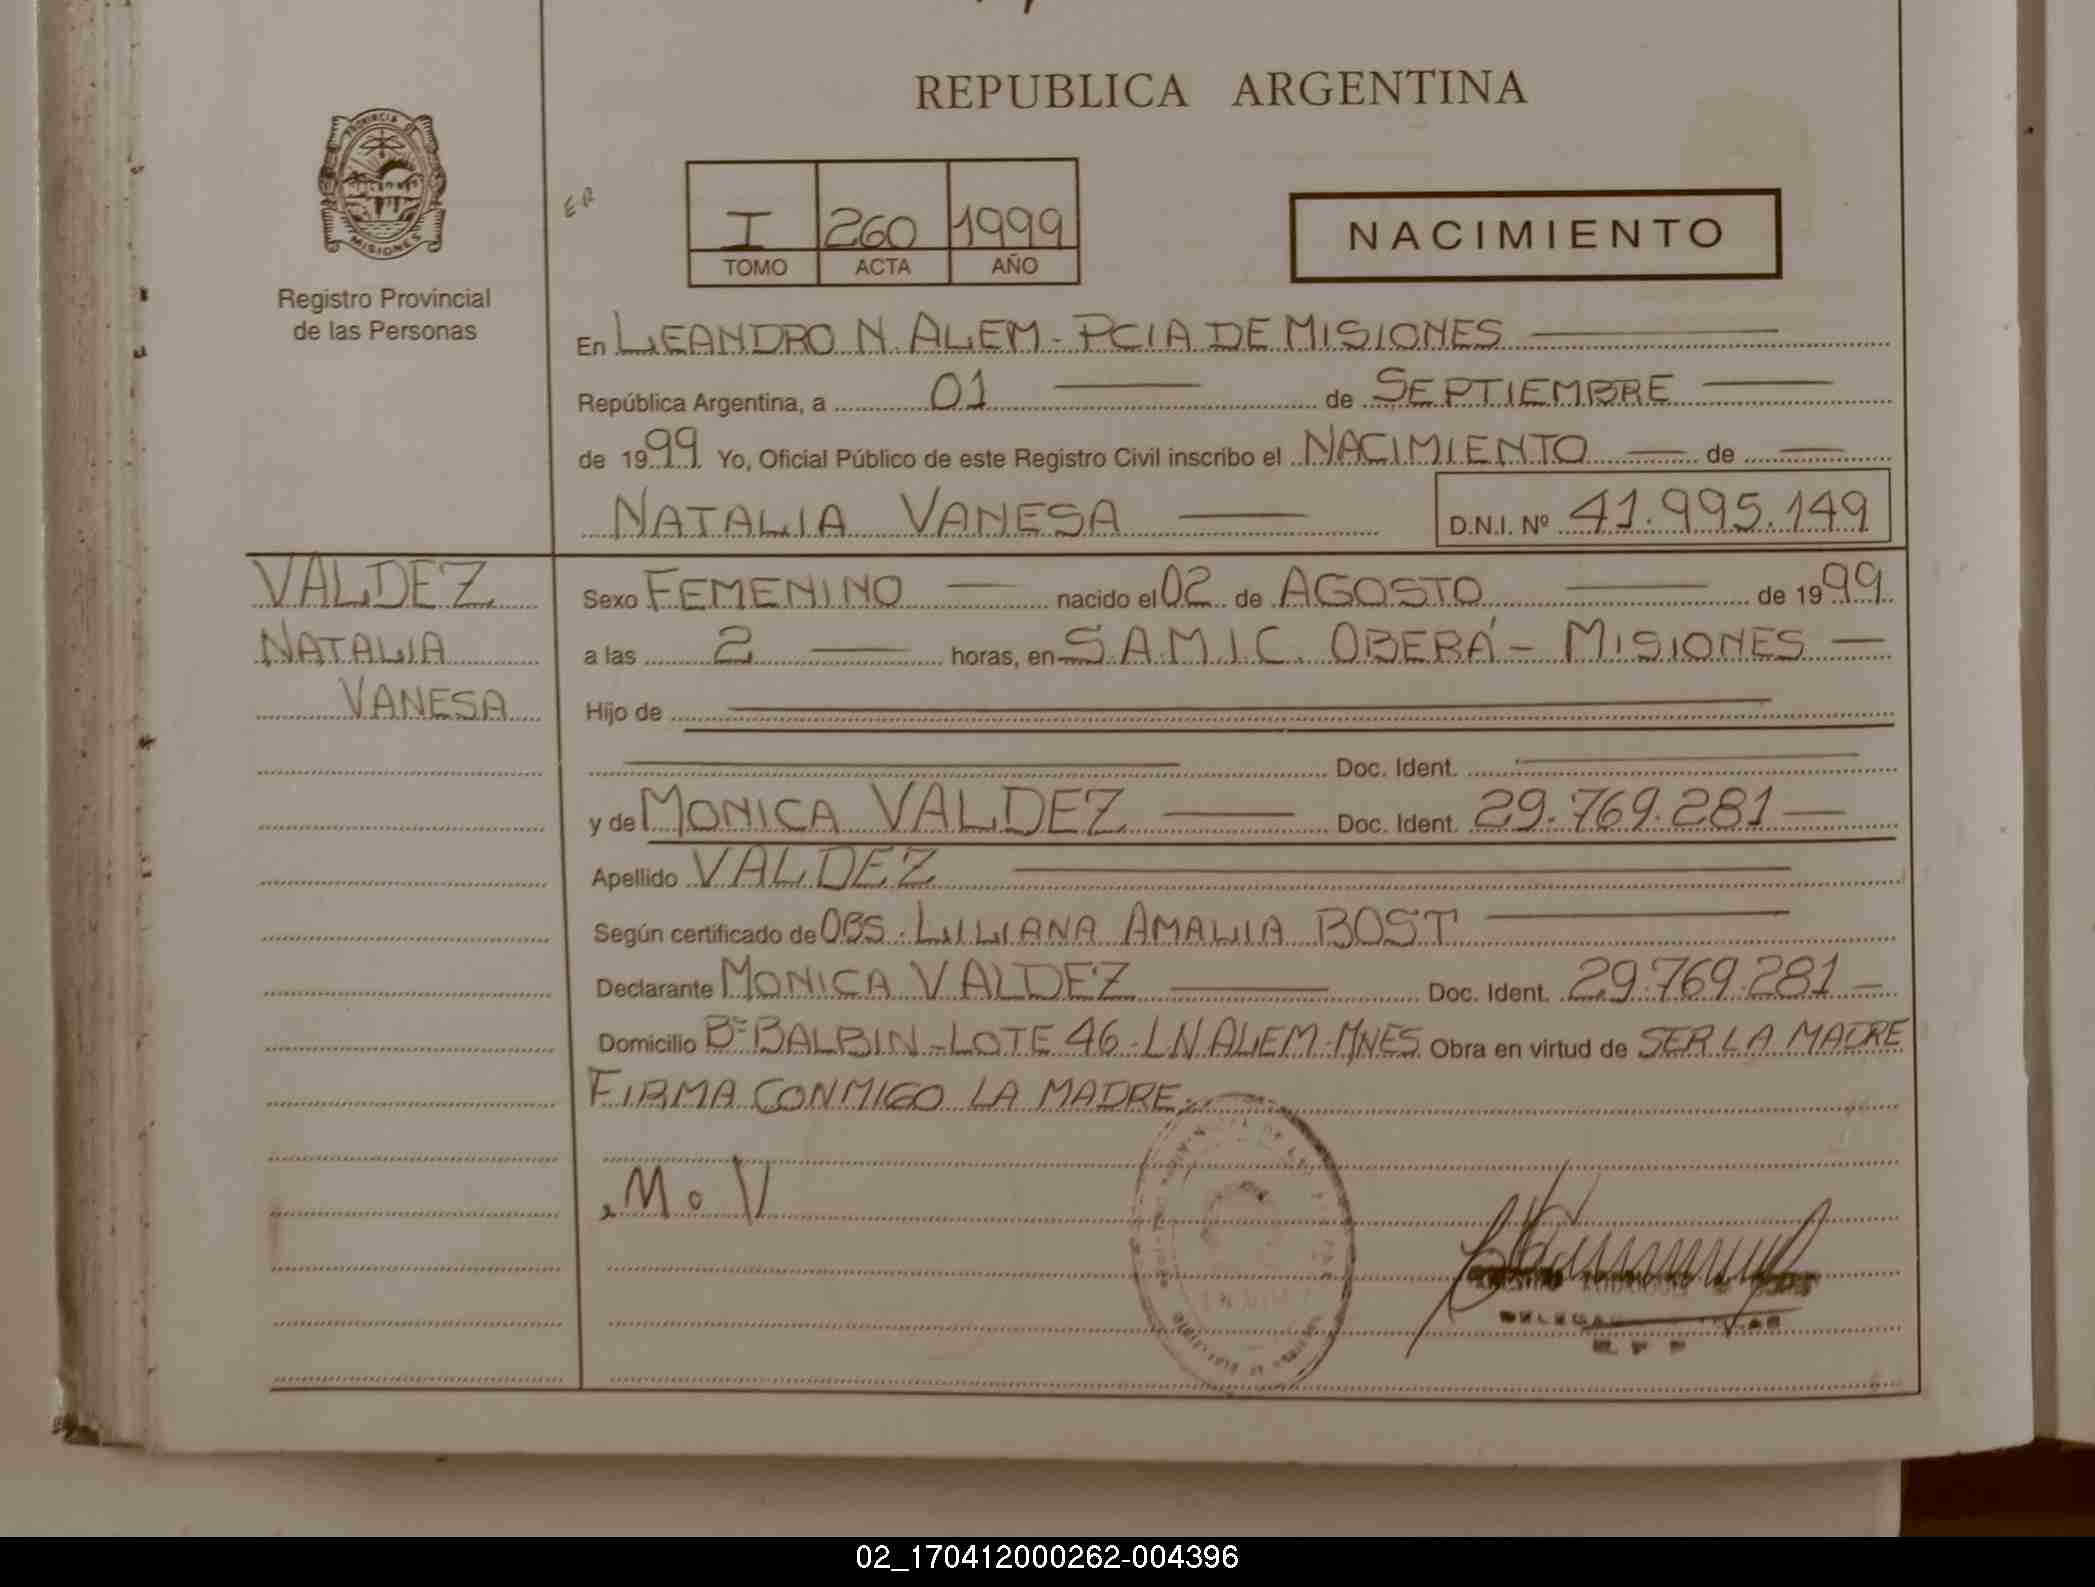 REPUBLICA ARGENTINA
PROVINCIA DE
MISIONES
Registro Provincial
de las Personas
ER
I 260 1999
TOMO ACTA AÑO
NACIMIENTO
En LEANDRO N. ALEM - PCIA DE MISIONES
República Argentina, a 01 de SEPTIEMBRE
de 1999 Yo, Oficial Público de este Registro Civil inscribo el NACIMIENTO de
NATALIA VANESA D.N.I. Nº 41.995.149
VALDEZ
NATALIA
VANESA
Sexo FEMENINO nacido el 02 de AGOSTO de 1999
a las 2 horas, en S.A.M.I.C. OBERÁ - MISIONES
Hijo de
Doc. Ident.
y de MONICA VALDEZ Doc. Ident. 29.769.281
Apellido VALDEZ
Según certificado de OBS. LILIANA AMALIA BOST
Declarante MONICA VALDEZ Doc. Ident. 29.769.281
Domicilio Bº BALBIN - LOTE 46 - L N ALEM - MNES Obra en virtud de SER LA MADRE
FIRMA CONMIGO LA MADRE.
M. V
02_170412000262-004396